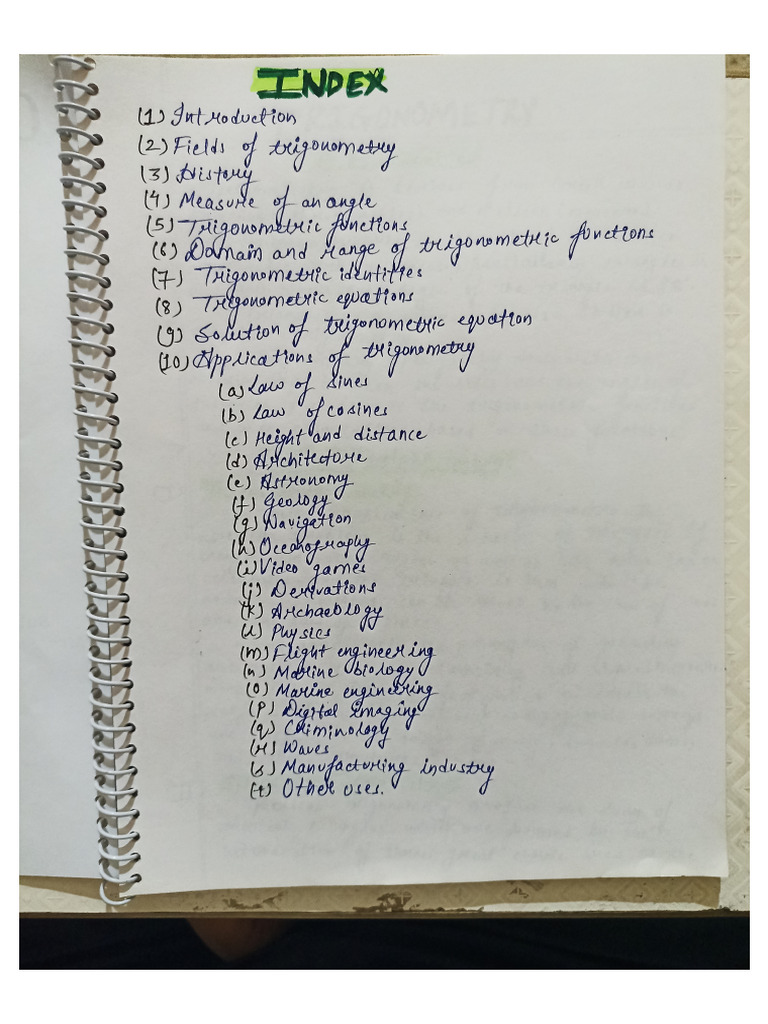 INDEX
(1) Introduction
(2) Fields of trigonometry
(3) History
(4) Measure of an angle
(5) Trigonometric functions
(6) Domain and range of trigonometric functions
(7) Trigonometric identities
(8) Trigonometric equations
(9) Solution of trigonometric equation
(10) Applications of trigonometry
(a) Law of sines
(b) Law of cosines
(c) Height and distance
(d) Architecture
(e) Astronomy
(f) Geology
(g) Navigation
(h) Oceanography
(i) Video games
(j) Derivations
(k) Archaeology
(l) Physics
(m) Flight engineering
(n) Marine biology
(o) Marine engineering
(p) Digital Imaging
(q) Criminology
(r) Waves
(s) Manufacturing industry
(t) Other uses.